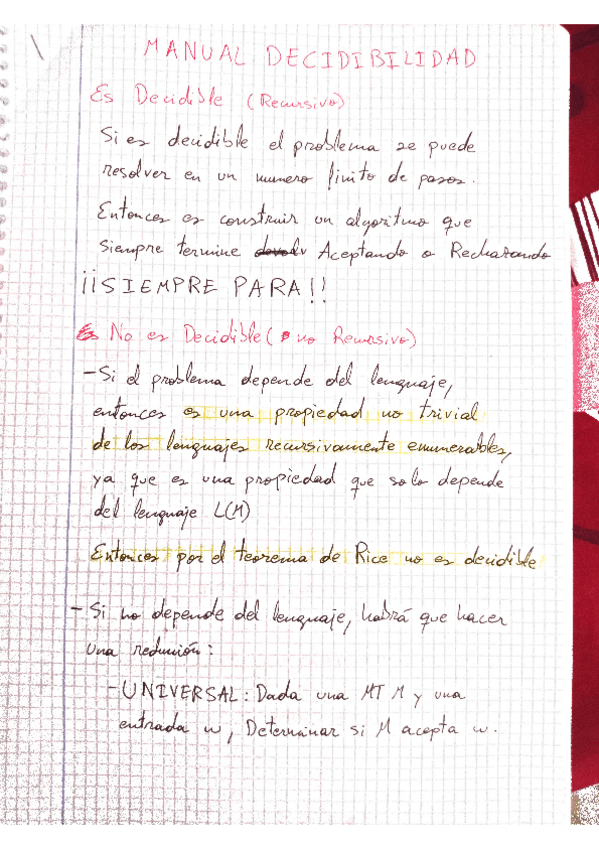 MANUAL DECIDIBILIDAD
Es Decidible (Recursivo)
Si es decidible el problema se puede
resolver en un numero finito de pasos.
Entonces es construir un algoritmo que
siempre termine Aceptando o Rechazando
¡¡SIEMPRE PARA!!
No es Decidible (no Recursivo)
-Si el problema depende del lenguaje,
entonces es una propiedad no trivial
de los lenguajes recursivamente enumerables,
ya que es una propiedad que solo depende
del lenguaje L(M)
Entonces por el teorema de Rice no es decidible
- Si no depende del lenguaje, habrá que hacer
una redunión:
-UNIVERSAL: Dada una MT M y una
entrada w, Determinar si M acepta w.